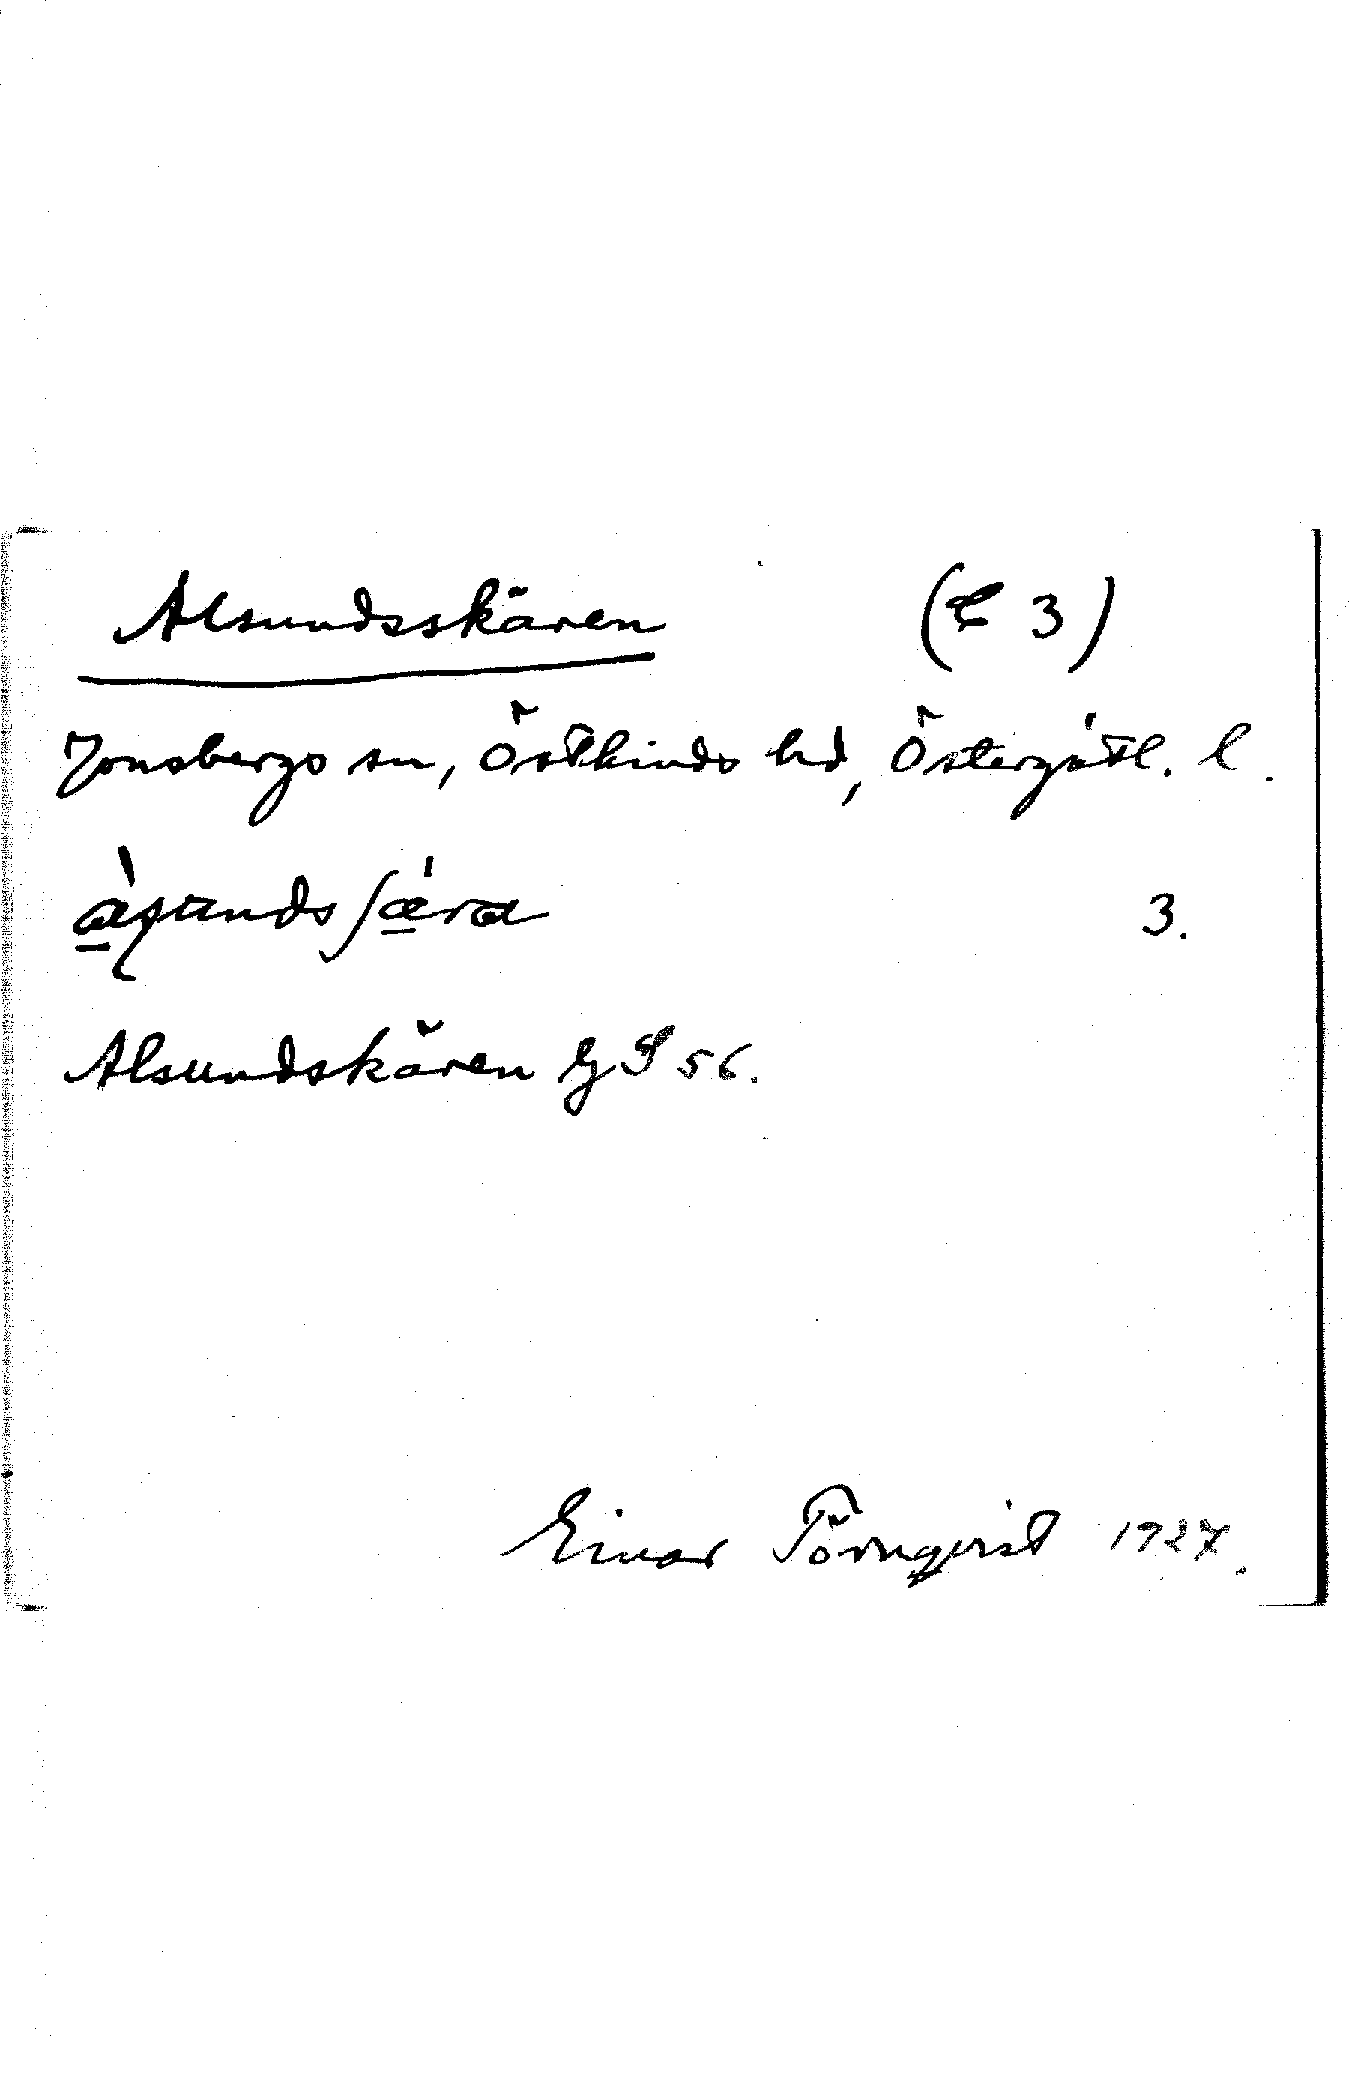 Alsundsskären (C 3)
Jonsbergs sn, Östkinds hd, Östergötl. l.
3.
Alsundskären GS 56.
Einar Törnqvist 1927.